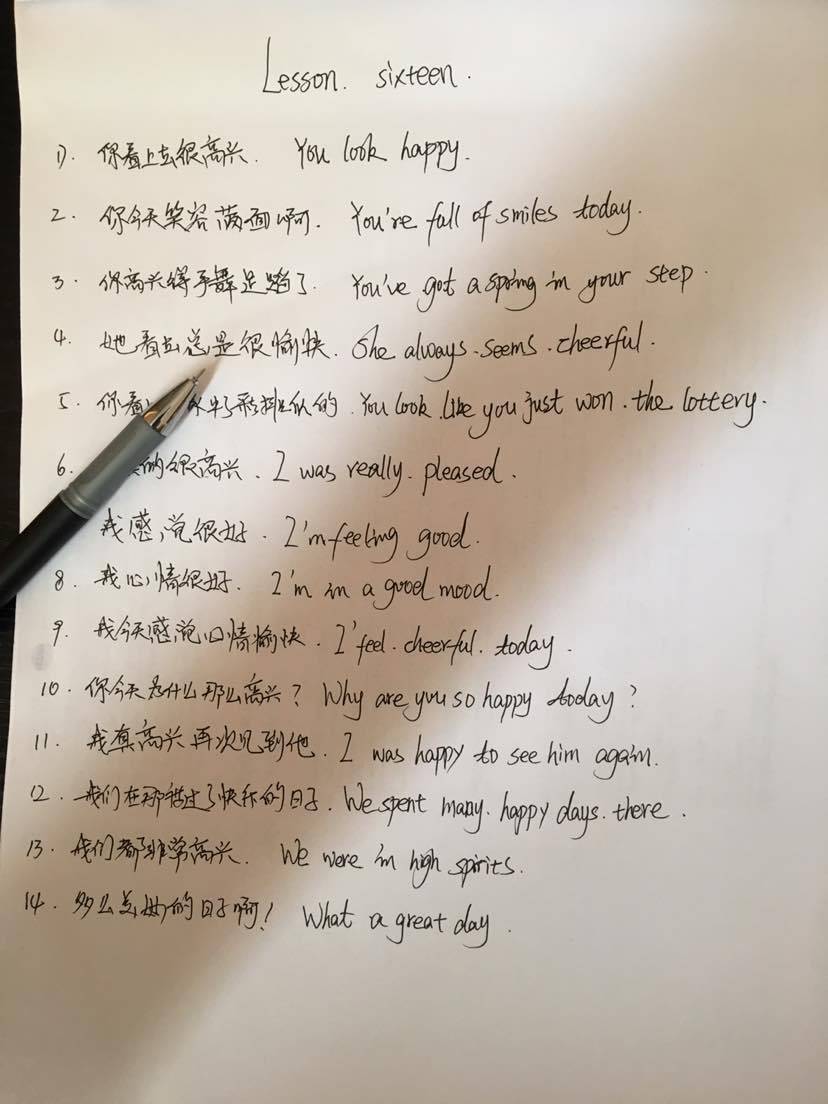 Lesson. sixteen.
1). 你看上去很高兴. You look happy.
2. 你今天笑容满面啊. You're full of smiles today.
3. 你高兴得手舞足蹈了. You've got a spring in your step.
4. 她看出总是很愉快. She always. seems. cheerful.
5. 你看 中了彩排似的. You look like you just won. the lottery.
6. 的很高兴. I was really. pleased.
我感觉很好. I'm feeling good.
8. 我心情很好. I'm in a good mood.
9. 我今天感觉心情愉快. I'feel. cheerful. today.
10. 你今天为什么那么高兴? Why are you so happy today?
11. 我真高兴再次见到他. I was happy to see him again.
12. 我们在那错过了快乐的日子. We spent many. happy days. there.
13. 我们都非常高兴. We were in high spirits.
14. 多么美妙的日子啊! What a great day.